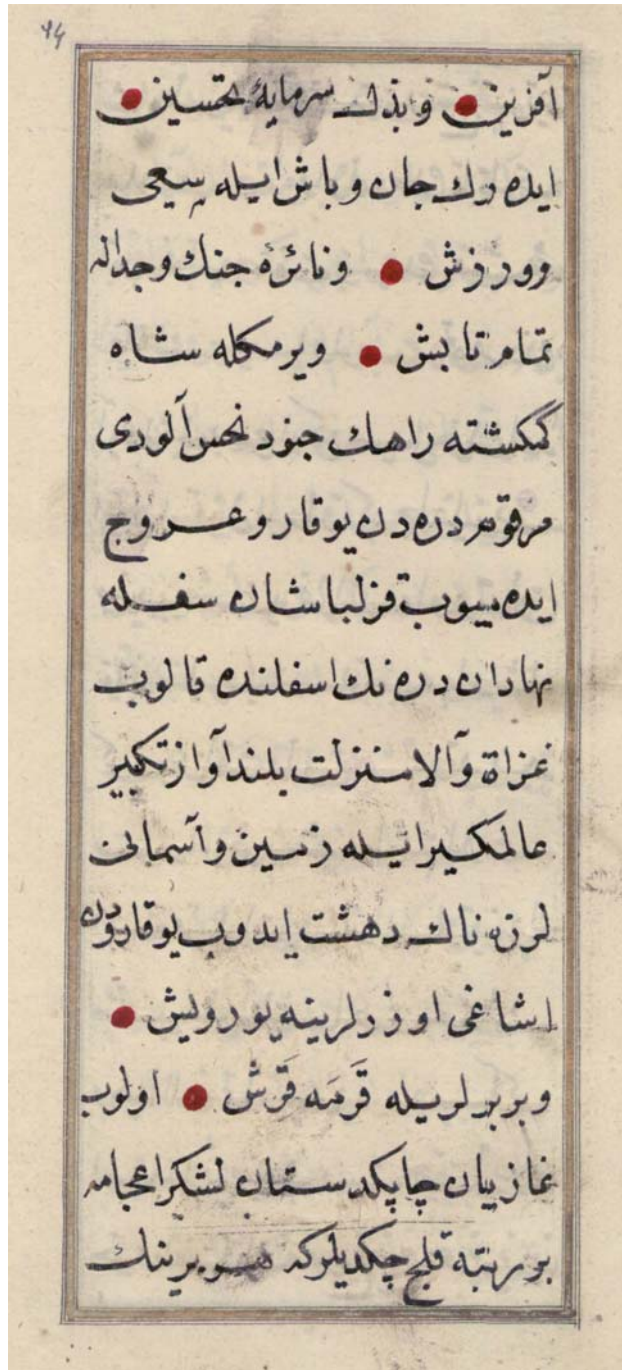 ٩٤
آفرین ● وبذل سرمایهٔ تحسین ●
ایده رك جان وباش ایله سعی
وورزش ● ونائرهٔ جنك وجداله
تمام تابش ● ویرمكله شاه
كمكشته راهك جنود نحس آلودی
مرقوم دره دن یوقارو عروج
ایده میوب قزلباشان سفله
نهادان دره نك اسفلنده قالوب
غزاة والا منزلت بلند آواز تكبیر
عالمكیر ایله زمین وآسمانی
لرزه ناك دهشت ایدوب یوقارودن
اشاغی اوزرلرینه یورویش ●
وبربرلریله قَرمَه قَرِش ● اولوب
غازیان چابكدستان لشكر اعجامه
بر رتبه قلج چكدیلر كه هر برینك